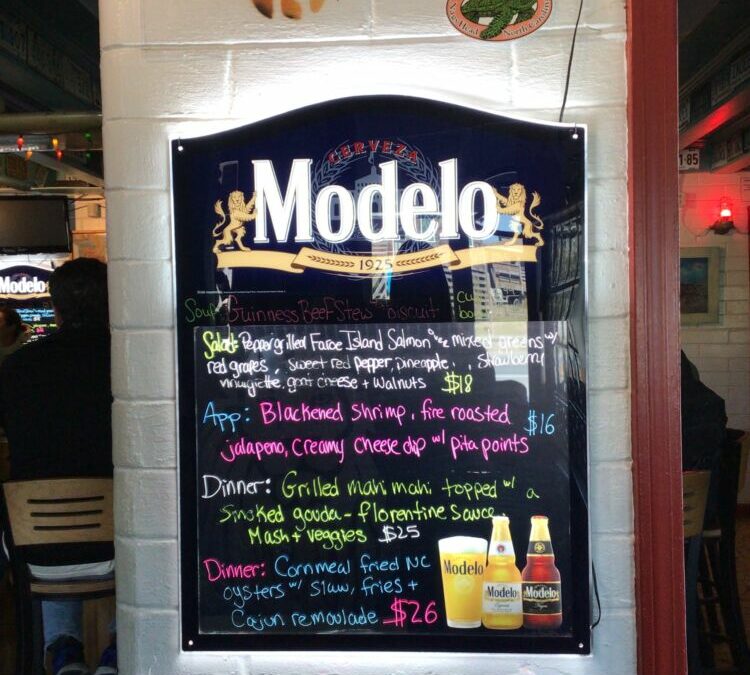 Nags Head North Carolina
CERVEZA
Modelo
1925
Soup: Guinness Beef Stew w/ biscuit
Salad: Pepper grilled Faroe Island Salmon over mixed greens w/
red grapes, sweet red pepper, pineapple, strawberry
vinagiette, goat cheese + walnuts $18
App: Blackened shrimp, fire roasted $16
jalapeno, creamy cheese dip w/ pita points
Dinner: Grilled mahi mahi topped w/ a
smoked gouda - florentine sauce,
Mash + veggies $25
Dinner: Cornmeal fried NC
oysters w/ slaw, fries +
Cajun remoulade $26
Modelo
Modelo
Modelo
Especial
Negra
Modelo
1-85